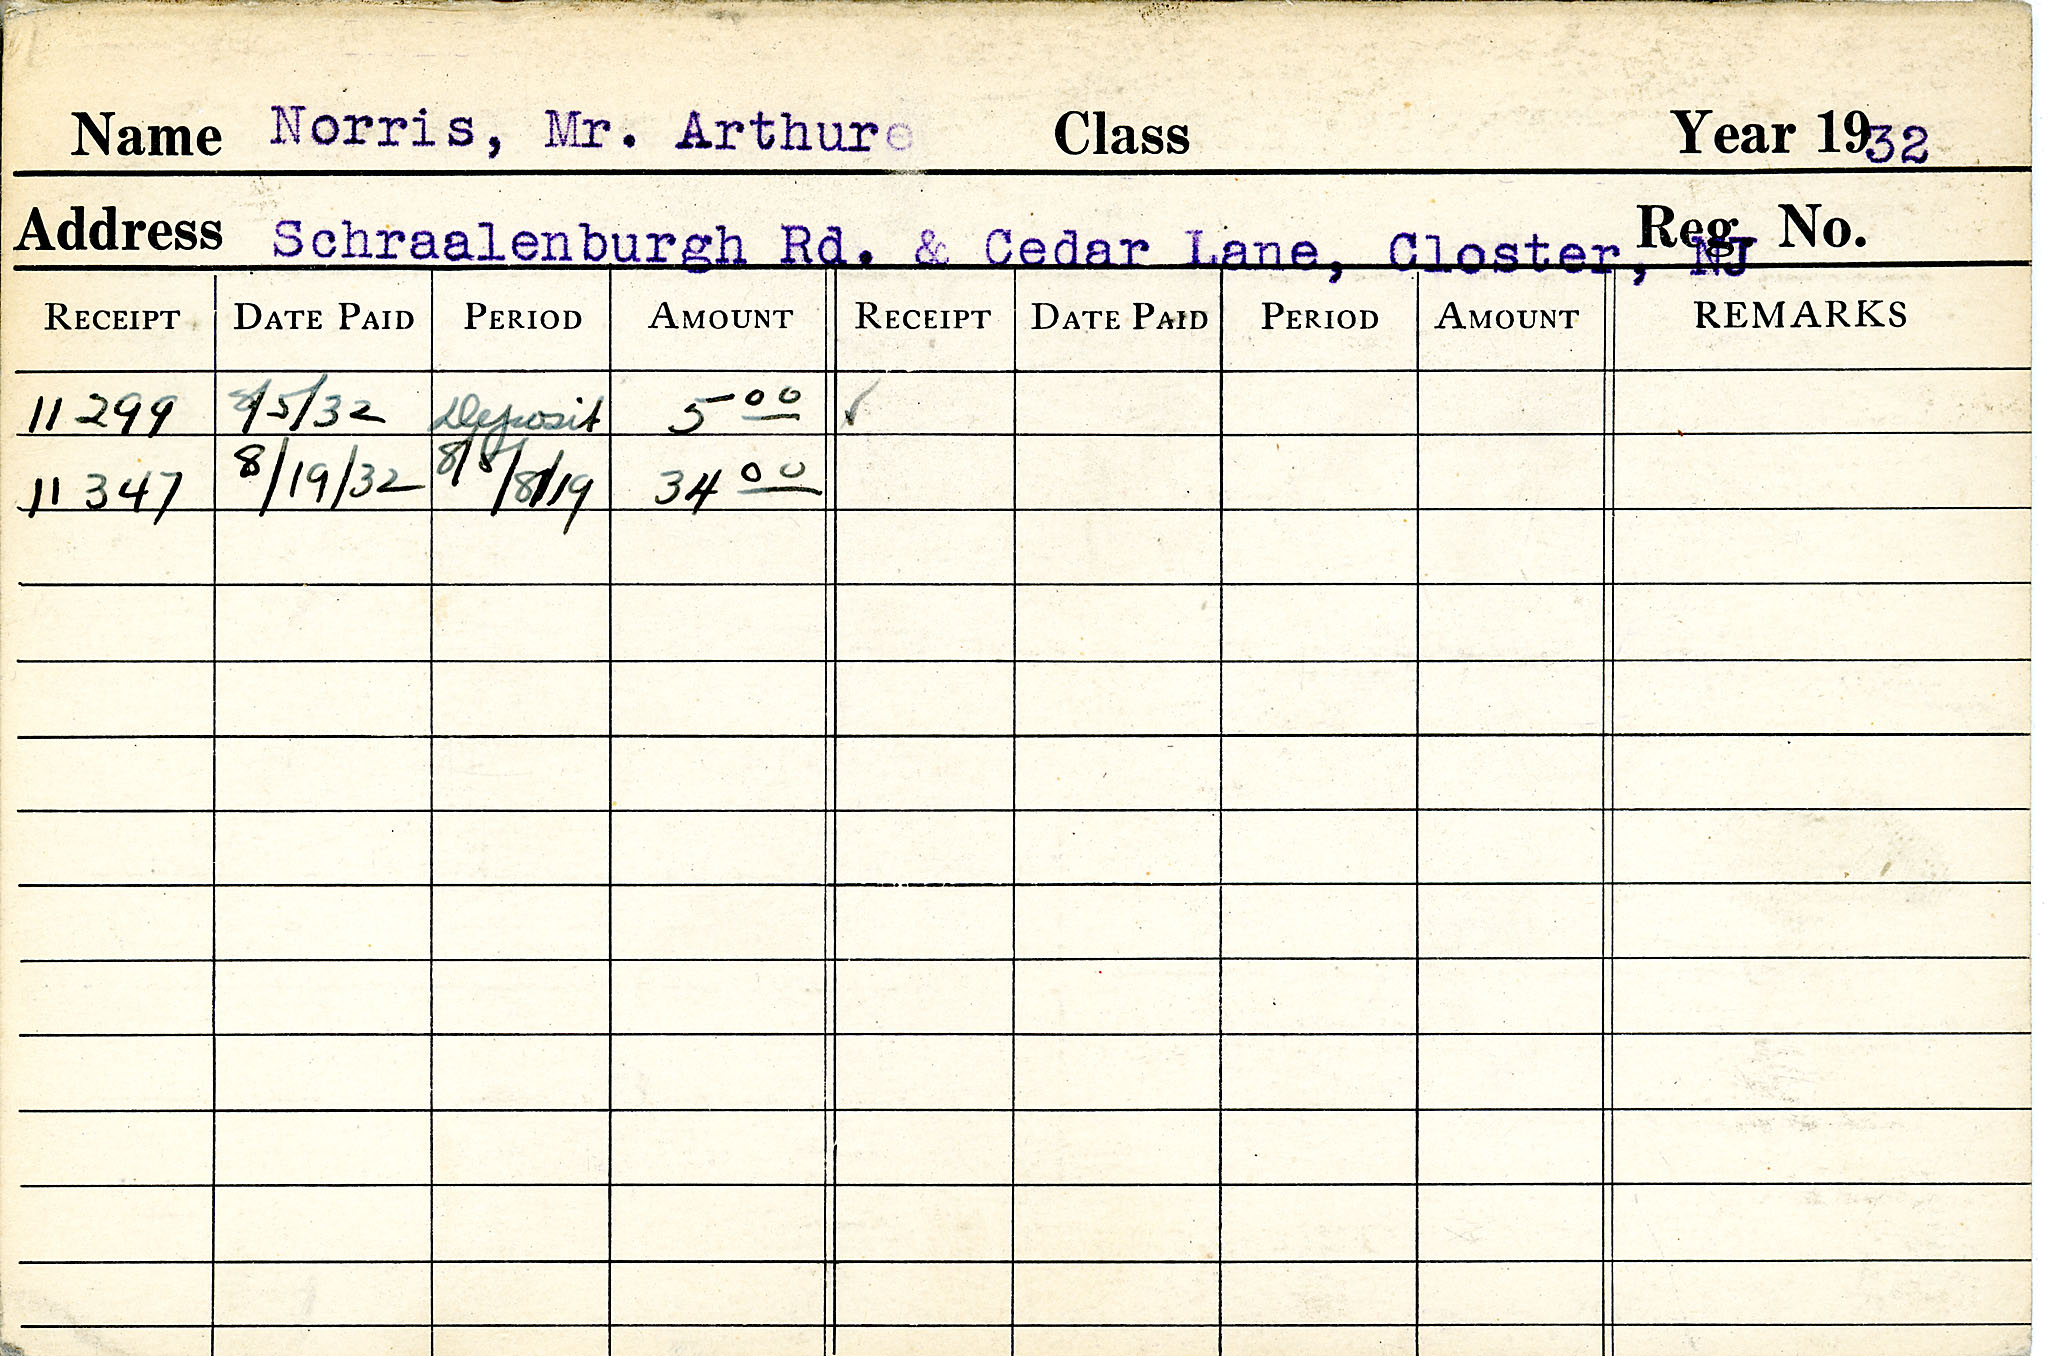 Name Norris, Mr. Arthur Class Year 1932
Address Schraalenburgh Rd. & Cedar Lane, Closter, NJ Reg. No.
RECEIPT DATE PAID PERIOD AMOUNT RECEIPT DATE PAID PERIOD AMOUNT REMARKS
11299 8/5/32 Deposit 5 00 ✓
11347 8/19/32 8/5/8/19 34 00